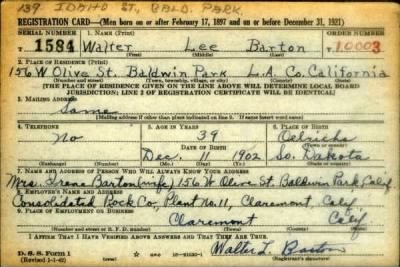 139 IDAHO ST., BALD. PARK.
REGISTRATION CARD—(Men born on or after February 17, 1897 and on or before December 31, 1921)
SERIAL NUMBER 1. NAME (Print) ORDER NUMBER
T 1584 Walter Lee Barton 10003
(First) (Middle) (Last)
2. PLACE OF RESIDENCE (Print)
156 W Olive St. Baldwin Park L.A. Co. California
(Number and street) (Town, township, village, or city) (County) (State)
[THE PLACE OF RESIDENCE GIVEN ON THE LINE ABOVE WILL DETERMINE LOCAL BOARD
JURISDICTION; LINE 2 OF REGISTRATION CERTIFICATE WILL BE IDENTICAL]
3. MAILING ADDRESS
Same
[Mailing address if other than place indicated on line 2. If same insert word same]
4. TELEPHONE 5. AGE IN YEARS 6. PLACE OF BIRTH
No 39 Oelrichs
DATE OF BIRTH (Town or county)
Dec. 11 1902 So. Dakota
(Mo.) (Day) (Yr.) (State or country)
7. NAME AND ADDRESS OF PERSON WHO WILL ALWAYS KNOW YOUR ADDRESS
Mrs. Irene Barton (wife) 156 W Olive St. Baldwin Park, Calif
8. EMPLOYER'S NAME AND ADDRESS
Consolidated Rock Co., Plant No. 11, Claremont, Calif
9. PLACE OF EMPLOYMENT OR BUSINESS
Claremont Calif
(Number and street or R. F. D. number) (Town) (County) (State)
I AFFIRM THAT I HAVE VERIFIED ABOVE ANSWERS AND THAT THEY ARE TRUE.
D. S. S. Form 1
(Revised 1-1-42)
Walter L Barton
(Registrant's signature)